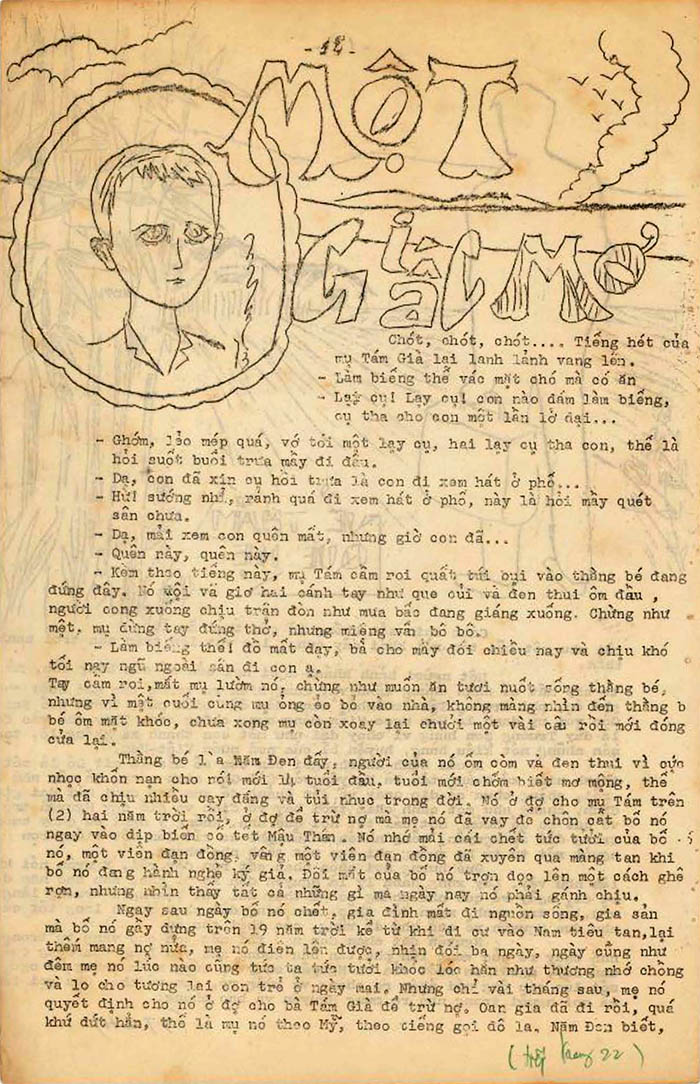 - 12 -
MỘT
GIẤC MƠ
Chót, chót, chót.... Tiếng hét của
mụ Tám Già lại lanh lảnh vang lên.
- Làm biếng thế vác mặt chó mà có ăn
- Lạy cụ! Lạy cụ! con nào dám làm biếng,
cụ tha cho con một lần lở dại...
- Ghớm, lẻo mép quá, vớ tới một lạy cụ, hai lạy cụ tha con, thế là
hỏi suốt buổi trưa mầy đi đâu.
- Dạ, con đã xin cụ hồi trưa là con đi xem hát ở phố...
- Hứ! sướng nhỉ, rảnh quá đi xem hát ở phố, này là hỏi mầy quét
sân chưa.
- Dạ, mải xem con quên mất, nhưng giờ con đã...
- Quên này, quên này.
- Kèm theo tiếng này, mụ Tám cầm roi quất túi bụi vào thằng bé đang
đứng đấy. Nó vội vả giơ hai cánh tay như que củi và đen thui ôm đầu ,
người cong xuống chịu trận đòn như mưa bấc đang giáng xuống. Chừng như
mệt, mụ dừng tay đứng thở, nhưng miệng vẫn bô bô.
- Làm biếng thế! đồ mất dạy, bà cho mày đói chiều nay và chịu khó
tối nay ngủ ngoài sân đi con ạ.
Tay cầm roi,mắt mụ lườm nó, chừng như muốn ăn tươi nuốt sống thằng bé,
nhưng vì mệt cuối cùng mụ ỏng ẻo bỏ vào nhà, không màng nhìn đến thằng b
bé ôm mặt khóc, chưa xong mụ còn xoay lại chưởi một vài câu rồi mới đóng
cửa lại.
Thằng bé l`a Năm Đen đấy, người của nó ốm còm và đen thui vì cực
nhọc khốn nạn cho nó! mới 14 tuổi đầu, tuổi mới chớm biết mơ mộng, thế
mà đã chịu nhiều cay đắng và tủi nhục trong đời. Nó ở đợ cho mụ Tám trên
(2) hai năm trời rồi, ở đợ để trừ nợ mà mẹ nó đã vay để chôn cất bố nó
ngay vào dịp biến cố tết Mậu Thân. Nó nhớ mải cái chết tức tưởi của bố
nó, một viên đạn đồng, vâng một viên đạn đồng đã xuyên qua màng tan khi
bố nó đang hành nghề ký giả. Đôi mắt của bố nó trợn dọc lên một cách ghê
rợn, nhưng nhìn thấy tất cả những gì mà ngày nay nó phải gánh chịu.
Ngay sau ngày bố nó chết, gia đình mất đi nguồn sống, gia sản
mà bố nó gây dựng trên 19 năm trời kể từ khi di cư vào Nam tiêu tan,lại
thêm mang nợ nửa, mẹ nó điên lên được, nhịn đói ba ngày, ngày cũng như
đêm mẹ nó lúc nào cũng tức ta tức tưởi khóc lóc hẳn như thương nhớ chồng
và lo cho tương lai con trẻ ở ngày mai. Nhưng chỉ vài tháng sau, mẹ nó
quyết định cho nó ở đợ cho bà Tám Già để trừ nợ. Oan gia đã đi rồi, quá
khứ dứt hẳn, thế là mụ nó theo Mỹ, theo tiếng gọi đô la. Năm Đen biết,
(tiếp trang 22)